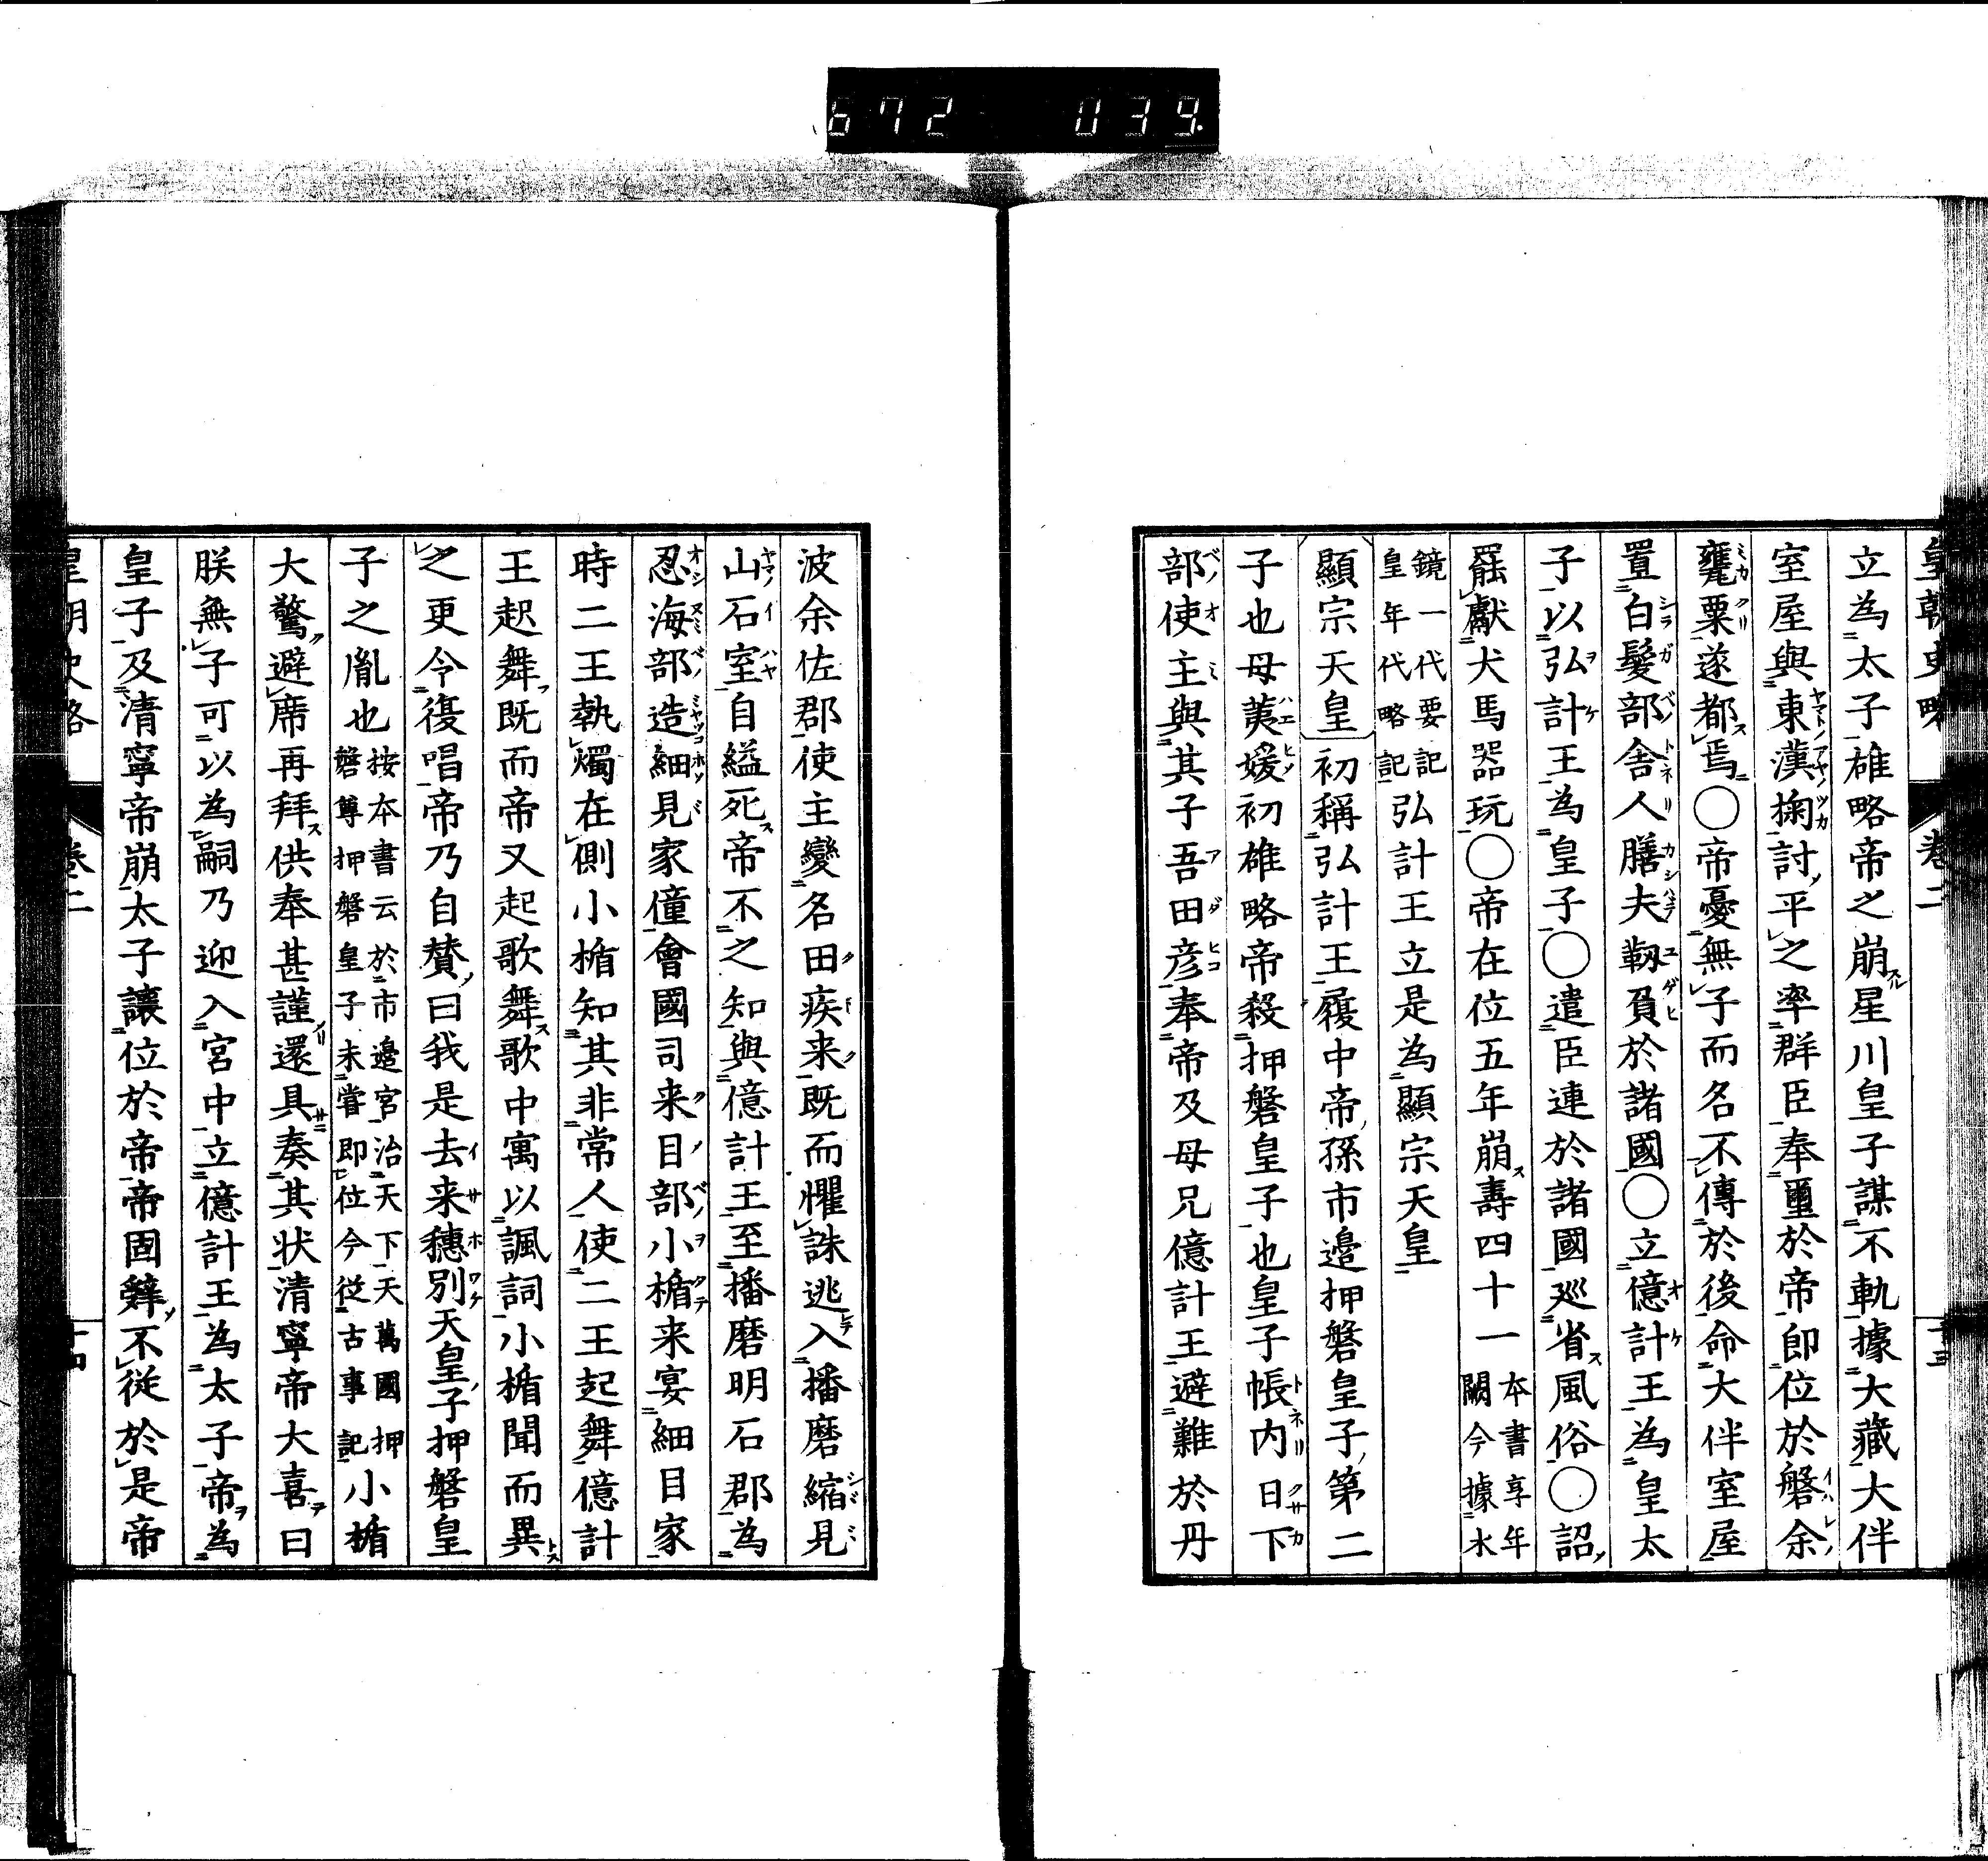 672 039
皇朝史略 卷二 十三
立為太子雄略帝之崩星川皇子謀不軌據大藏大伴
室屋與東漢掬討平之率群臣奉璽於帝即位於磐余
甕栗遂都焉○帝憂無子而名不傳於後命大伴室屋
置白髮部舍人膳夫靱負於諸國○立億計王為皇太
子以弘計王為皇子○遣臣連於諸國巡省風俗○詔
罷獻犬馬器玩○帝在位五年崩壽四十一本書享年闕今據水
鏡一代要記皇年代略記弘計王立是為顯宗天皇
顯宗天皇初稱弘計王履中帝孫市邊押磐皇子第二
子也母荑媛初雄略帝殺押磐皇子也皇子帳内日下
部使主與其子吾田彦奉帝及母兄億計王避難於丹
波余佐郡使主變名田疾来既而懼誅逃入播磨縮見
山石室自縊死帝不之知與億計王至播磨明石郡為
忍海部造細見家僮會國司来目部小楯来宴細目家
時二王執燭在側小楯知其非常人使二王起舞億計
王起舞既而帝又起歌舞歌中寓以諷詞小楯聞而異
之更令復唱帝乃自贊曰我是去来穗別天皇子押磐皇
子之胤也按本書云於市邊宮治天下天萬國押磐尊押磐皇子未嘗即位今従古事記小楯
大驚避席再拜供奉甚謹還具奏其状清寧帝大喜曰
朕無子可以為嗣乃迎入宮中立億計王為太子帝為
皇子及清寧帝崩太子讓位於帝帝固辭不従於是帝
皇朝史略 卷二 十四